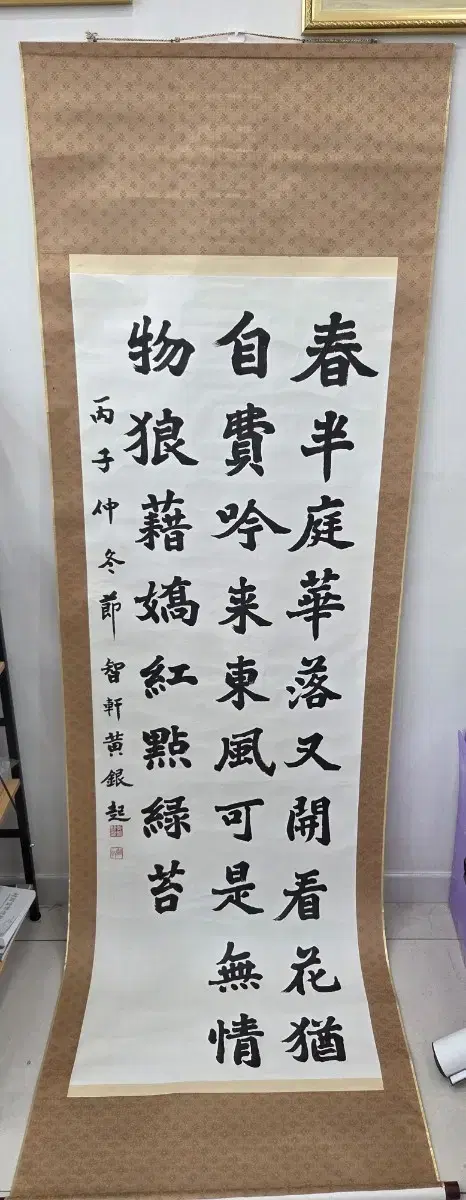 春半庭華落又開看花猶
自費吟来東風可是無情
物狼藉嬌紅點緑苔
丙子仲冬節 智軒黄銀起